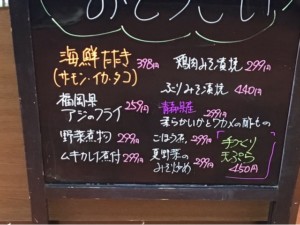 海鮮たたき 398円
(サーモン・イカ・タコ)
福岡県
アジのフライ 259円
野菜煮物 299円
ムキカレイ煮付 299円
鶏肉みそ漬焼 299円
ぶりみそ漬焼 440円
青森県産
柔らかいかとワカメの酢もの
ごぼう茶 299円
夏野菜の
みそ炒め 399円
手づくり
天ぷら
450円